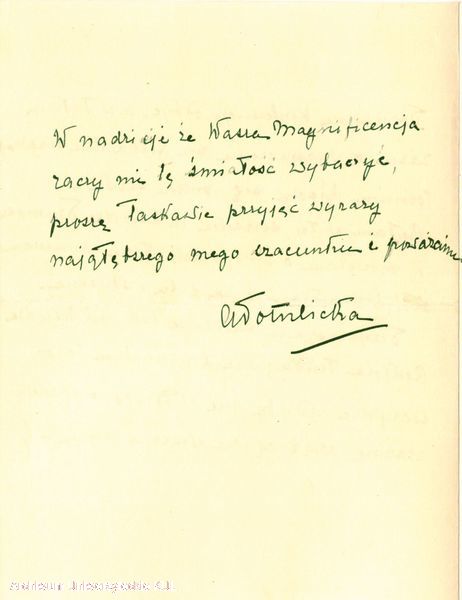 W nadzieje że Wasza Magnificencja
raczy mi tę śmiałość wybaczyć,
proszę łaskawie przyjąć wyrazy
najgłębszego mego szacunku i poważania